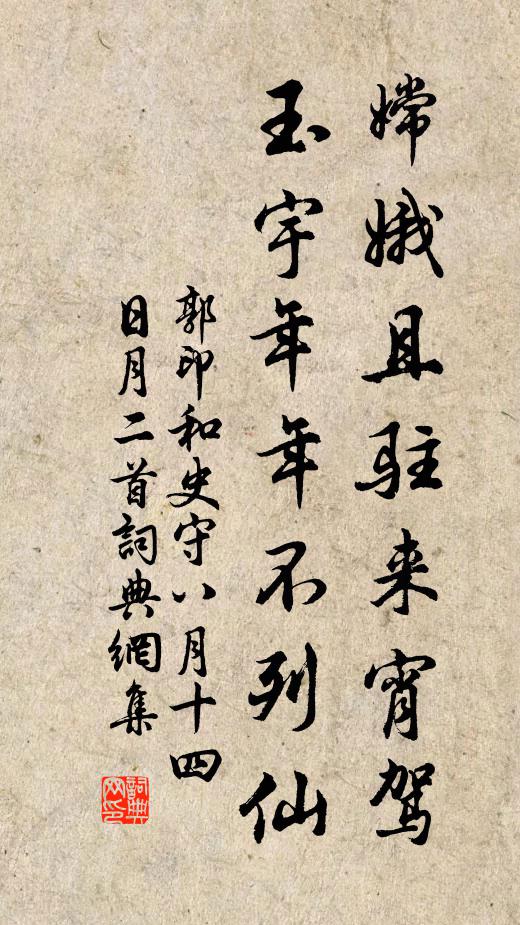 嫦娥且駐来宵駕
玉宇年年不列仙
郭印和史守八月十四
日月二首詞典網集
詞典
网印